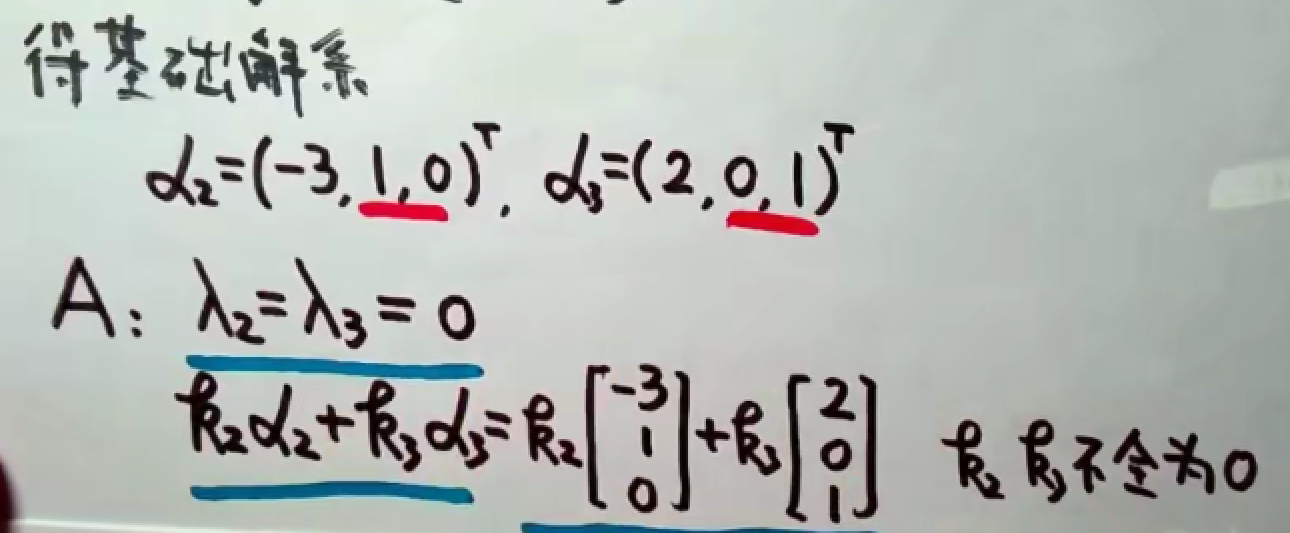 得基础解系
α₂=(-3,1,0)ᵀ, α₃=(2,0,1)ᵀ
A: λ₂=λ₃=0
k₂α₂+k₃α₃=k₂[-3 1 0]+k₃[2 0 1] k₂ k₃不全为0